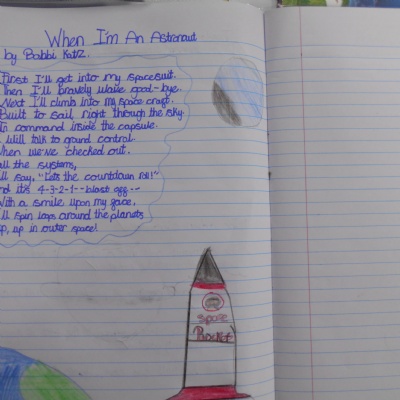 When I'm An Astronaut
by Bobbi Katz.
First I'll get into my spacesuit.
Then I'll bravely wave good-bye.
Next I'll climb into my space craft.
Built to sail right through the sky.
In command inside the capsule.
Will talk to ground control.
When we've checked out.
all the systems,
I'll say, "Let's the countdown roll!"
And it's 4-3-2-1--blast off--
With a smile upon my face,
I'll spin laps around the planets
up, up in outer space!
space
Rocket